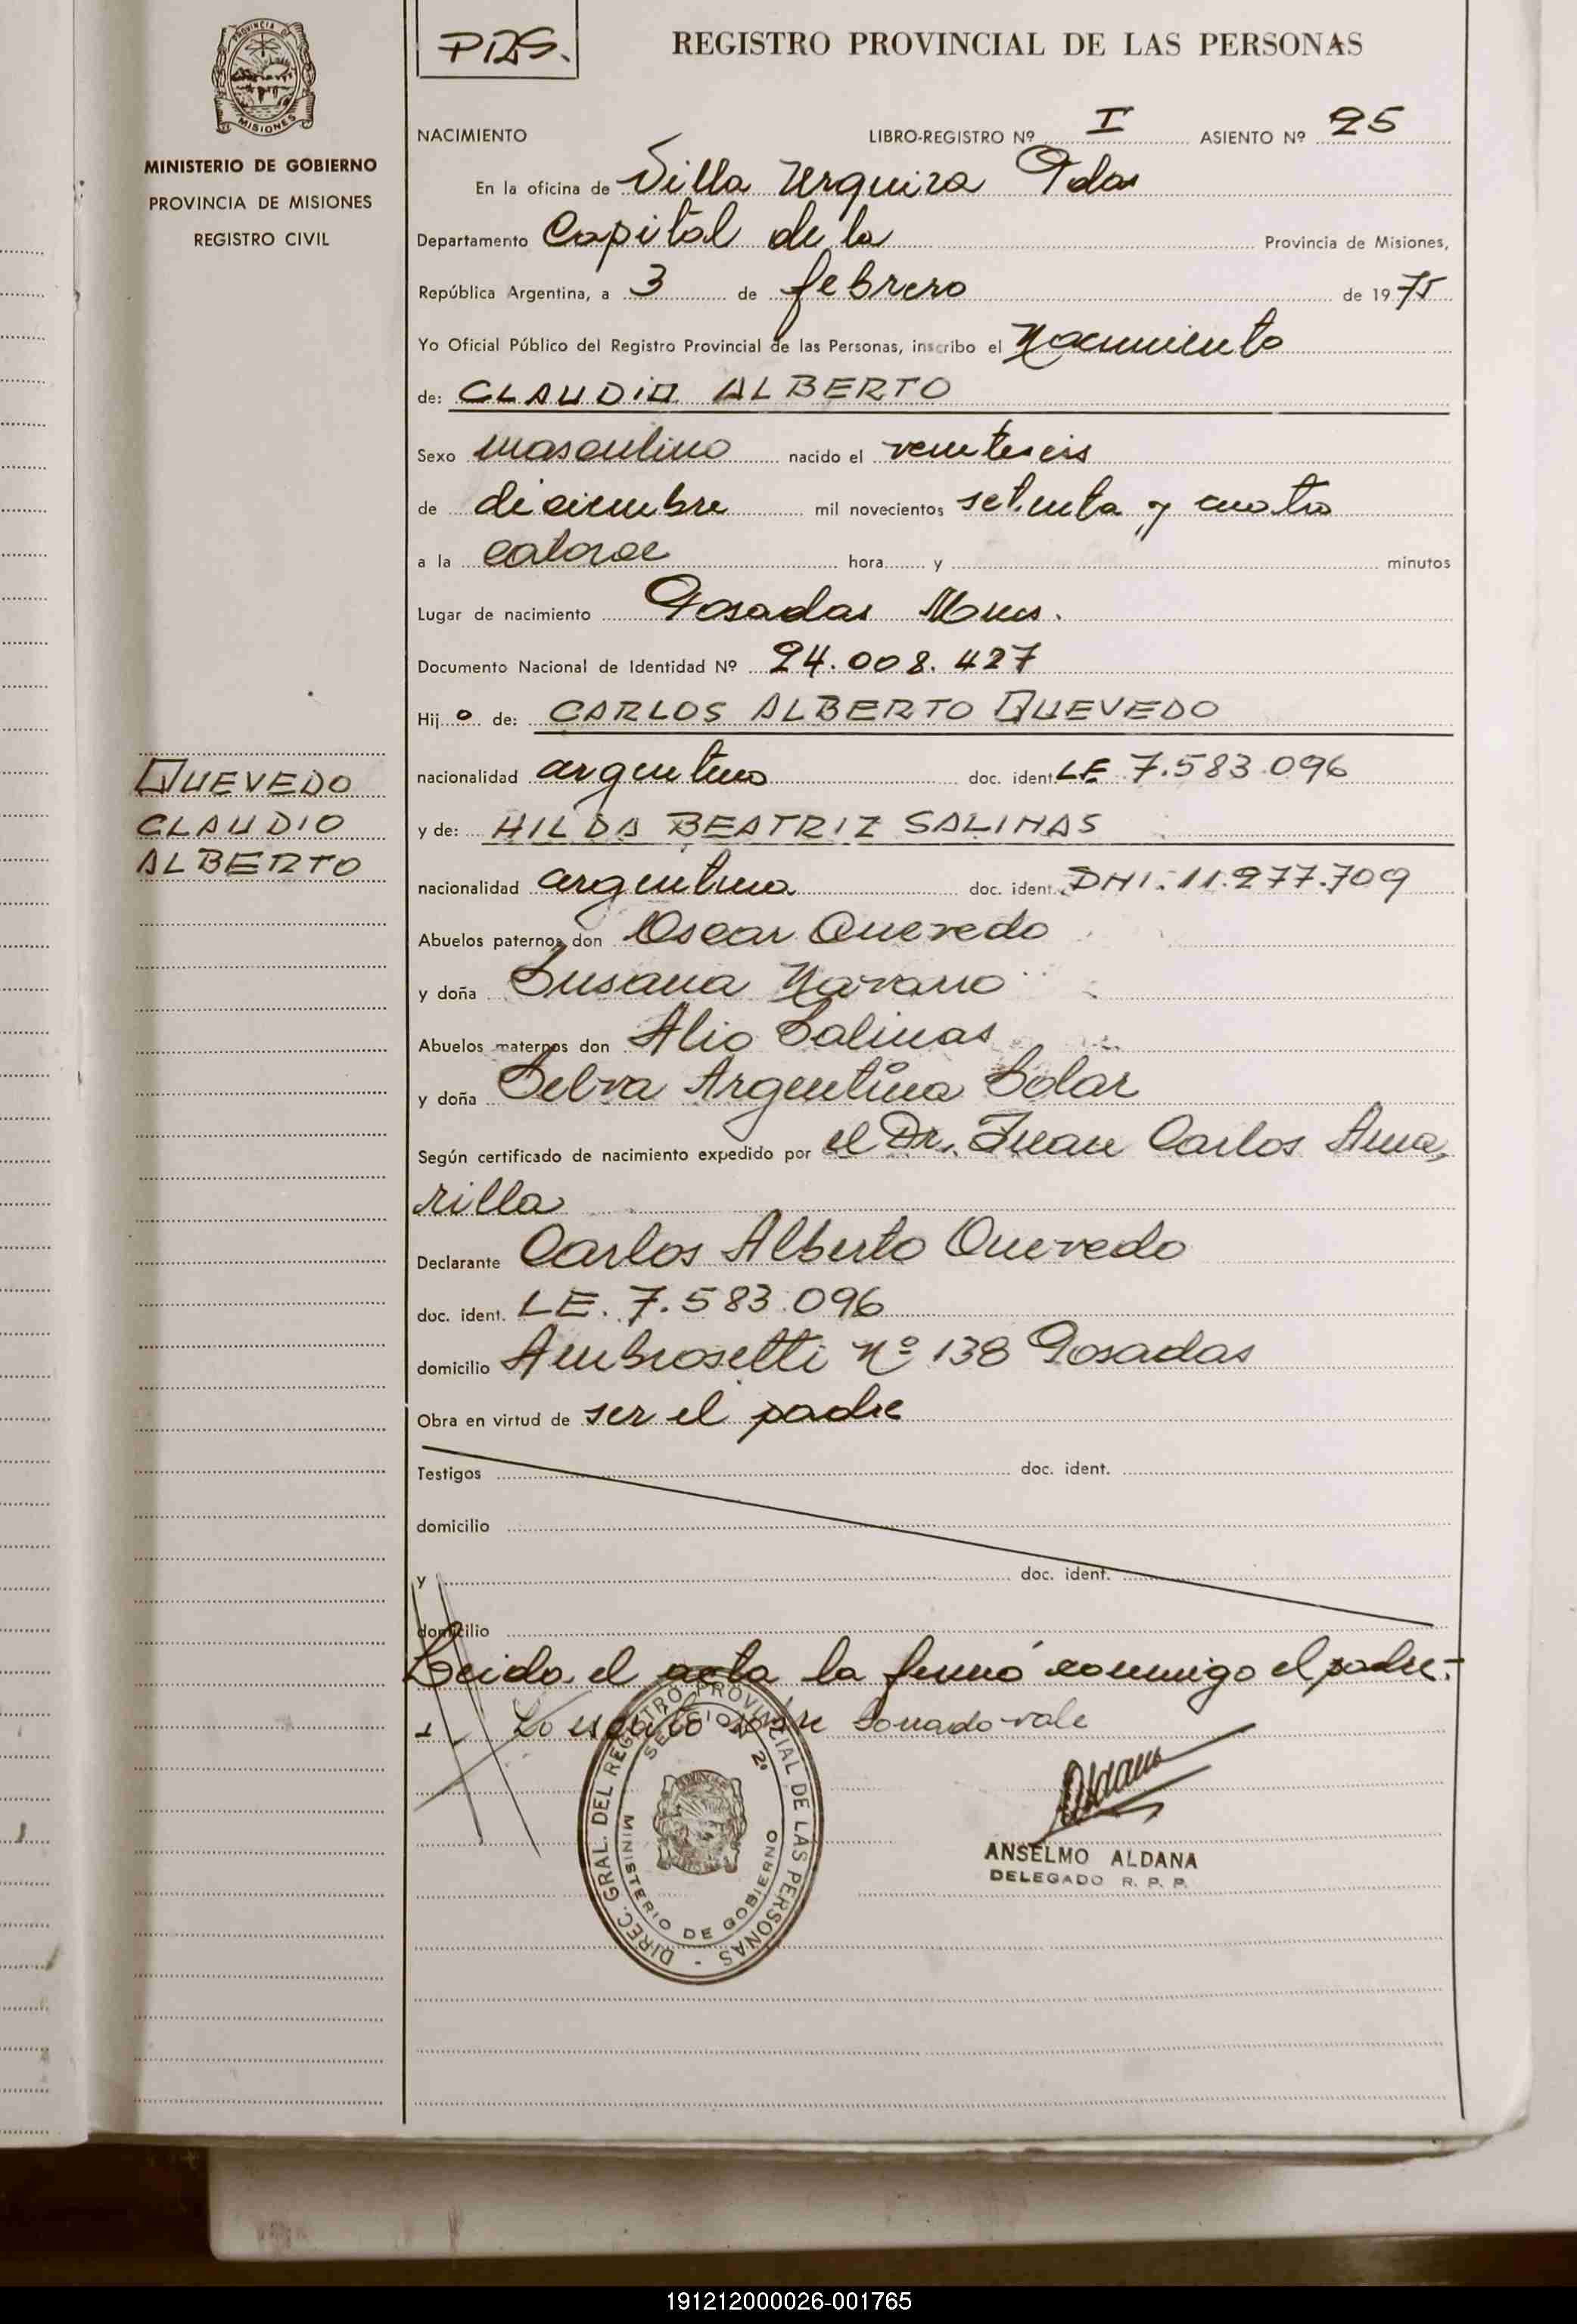 PROVINCIA DE
MISIONES
MINISTERIO DE GOBIERNO
PROVINCIA DE MISIONES
REGISTRO CIVIL
QUEVEDO
CLAUDIO
ALBERTO
PDS.
REGISTRO PROVINCIAL DE LAS PERSONAS
NACIMIENTO LIBRO-REGISTRO Nº I ASIENTO Nº 25
En la oficina de Villa Urquiza Pdas
Departamento Capital de la Provincia de Misiones,
República Argentina, a 3 de febrero de 1975
Yo Oficial Público del Registro Provincial de las Personas, inscribo el Nacimiento
de: CLAUDIO ALBERTO
Sexo masculino nacido el veinteseis
de diciembre mil novecientos setenta y cuatro
a la catorce hora y minutos
Lugar de nacimiento Posadas Mnes.
Documento Nacional de Identidad Nº 24.008.427
Hijo de: CARLOS ALBERTO QUEVEDO
nacionalidad argentino doc. ident. LE 7.583.096
y de: HILDA BEATRIZ SALINAS
nacionalidad argentina doc. ident. DNI. 11.277.709
Abuelos paternos don Oscar Quevedo
y doña Susana Navarro
Abuelos maternos don Alio Salinas
y doña Selva Argentina Solar
Según certificado de nacimiento expedido por el Dr. Juan Carlos Ama,
rilla
Declarante Carlos Alberto Quevedo
doc. ident. LE. 7.583.096
domicilio Ambrosetti nº 138 Posadas
Obra en virtud de ser el padre
Testigos doc. ident.
domicilio
y doc. ident.
domicilio
Leida el acta la firmó conmigo el padre.-
Lo escrito sobre borrado vale
DIREC. GRAL. DEL REGISTRO PROVINCIAL DE LAS PERSONAS -
SECCION 2ª
MINISTERIO DE GOBIERNO
Aldana
ANSELMO ALDANA
DELEGADO R. P. P.
191212000026-001765